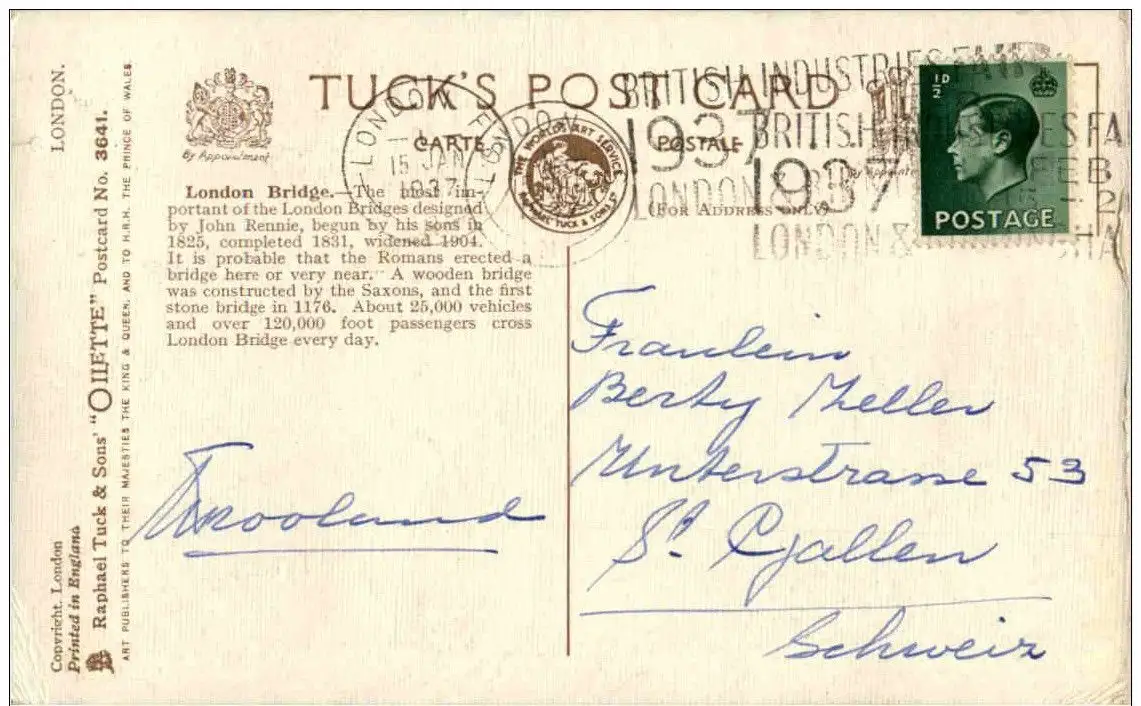 LONDON.
Raphael Tuck & Sons' "OILETTE" Postcard No. 3641.
ART PUBLISHERS TO THEIR MAJESTIES THE KING & QUEEN, AND TO H.R.H. THE PRINCE OF WALES.
Copyright. London
Printed in England
TUCK'S POST CARD
CARTE POSTALE
By Appointment
(FOR ADDRESS ONLY)
THE WORLD'S ART SERVICE
RAPHAEL TUCK & SONS LTD
London Bridge.—The most im-
portant of the London Bridges designed
by John Rennie, begun by his sons in
1825, completed 1831, widened 1904.
It is probable that the Romans erected a
bridge here or very near. A wooden bridge
was constructed by the Saxons, and the first
stone bridge in 1176. About 25,000 vehicles
and over 120,000 foot passengers cross
London Bridge every day.
LONDON
15 JAN
1937
BRITISH INDUSTRIES FAIR
1937
LONDON &
BRITISH INDUSTRIES FA
1937 FEB
LONDON &
½D
POSTAGE
Fraulein
Berty Zeller
Unterstrasse 53
St. Gallen
Schweiz